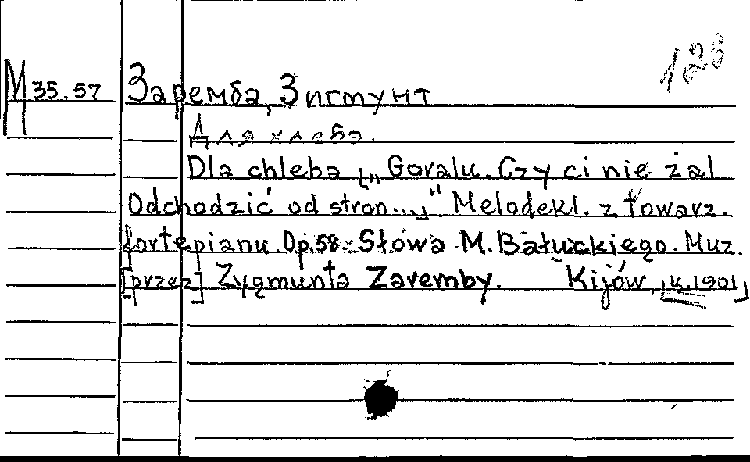 123
M 35.57 Заремба, Зигмунт
Для хлеба.
Dla chleba [„Goralu. Czy ci nie żal
Odchodzić od stron...]" Melodekl. z towarz.
fortepianu. Op. 58. Słowa M. Bałuckiego. Muz.
[przez] Zygmunta Zaremby. Kijów, [1901]